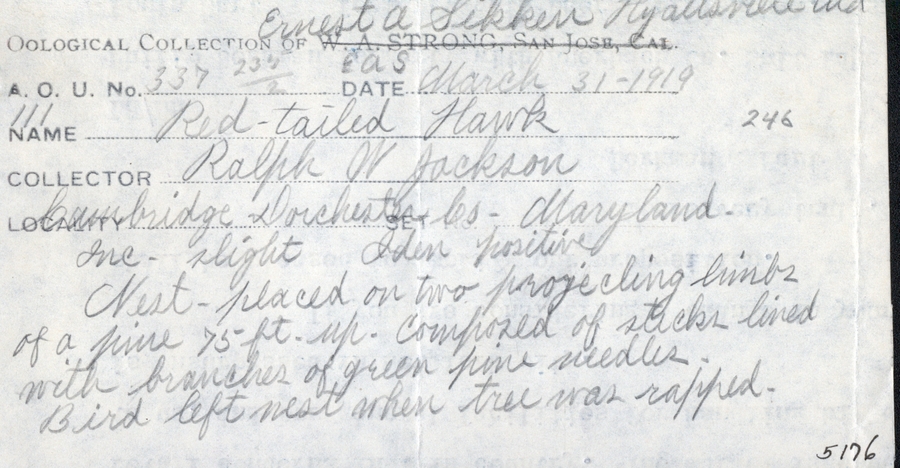 Ernest A Sikken Hyattsville Md
OOLOGICAL COLLECTION OF W. A. STRONG, SAN JOSE, CAL.
EAS
A. O. U. No. 337 235/2 DATE March 31-1919
111
NAME Red-tailed Hawk 246
COLLECTOR Ralph W Jackson
LOCALITY Cambridge Dorchester SET No. Co- Maryland-
Inc- slight Iden positive
Nest- placed on two projecting limbs
of a pine 75-ft. up- Composed of sticks lined
with branches of green pine needles-
Bird left nest when tree was rapped-
5176